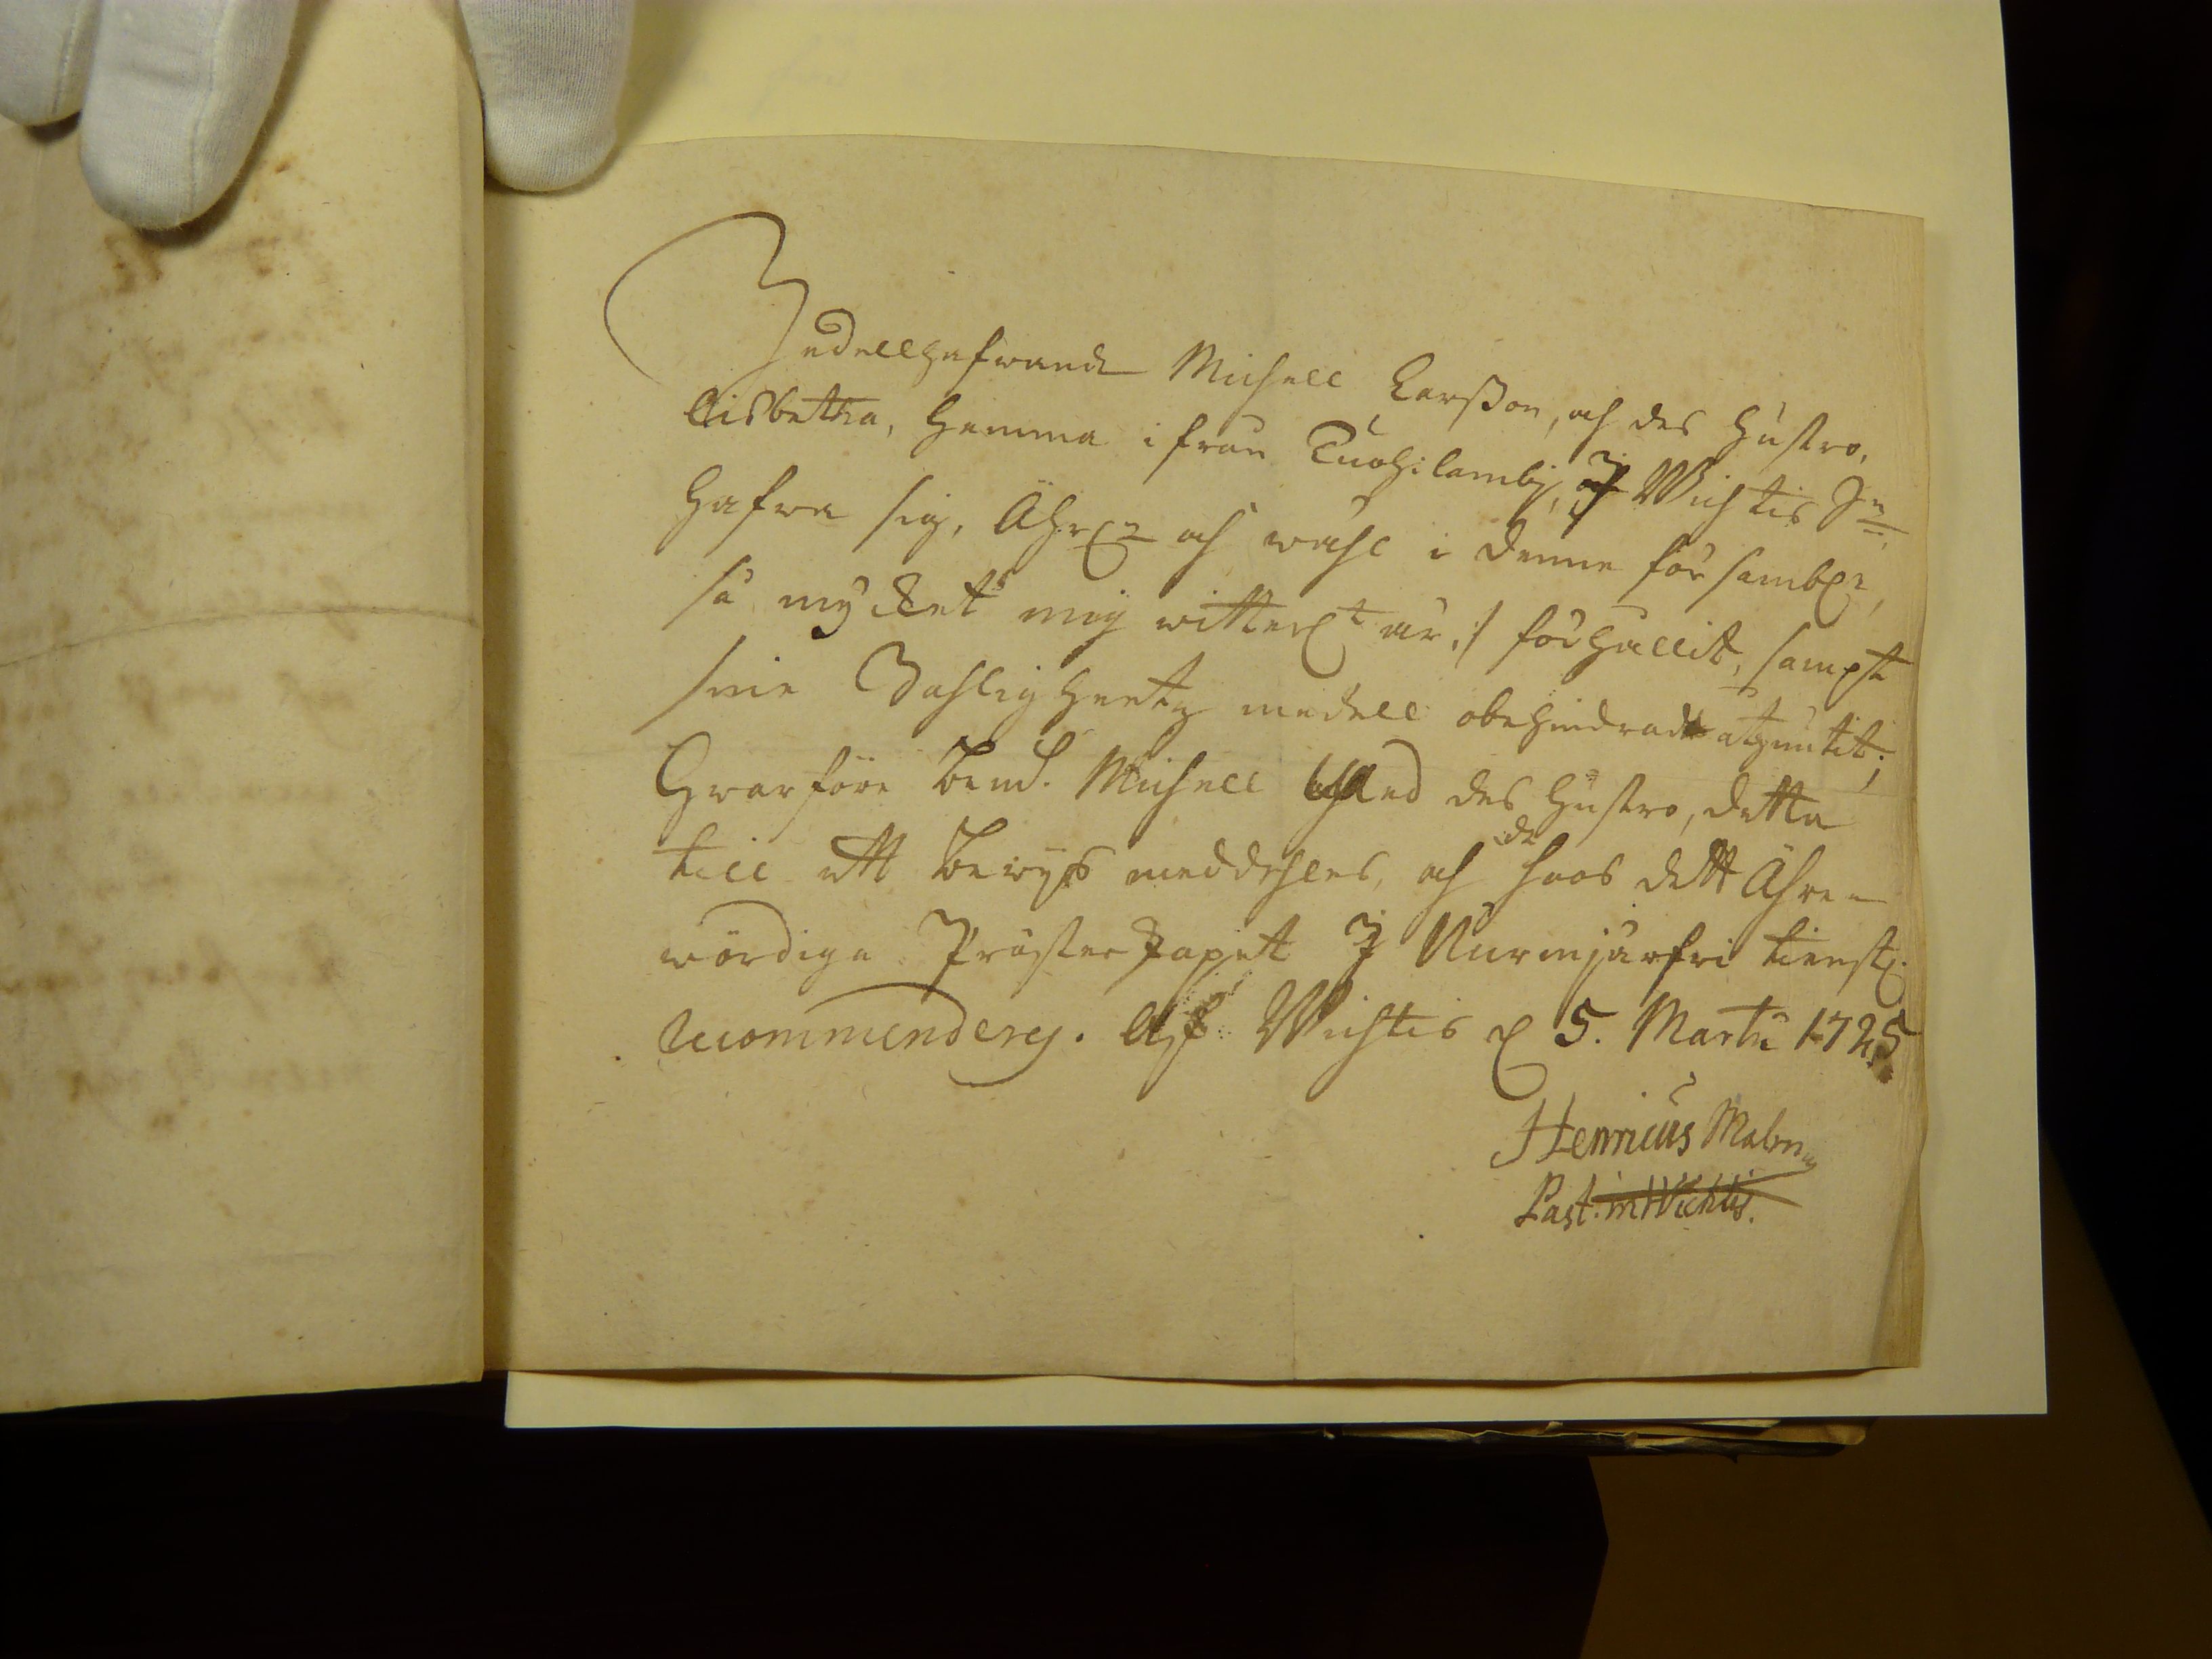 Zedelhafwande Michell Larßon, och des Hustro,
Lisbetha, hemma ifrån Tuohilamby, J Wichtis Sn
hafwa sig, Ährl. och wähl i denne försambl.
så mycket mig witterl.t är :/ förhållit, sampt
sine Sahligheetz medell obehindradt atniutit;
Hwarföre bem.t Michell med des Hustro, detta
till ett bewijs meddehles, och de hoos dett Ähre-
wördige Prästerskapett J Nurmjärfwi tienstl.
recommenderes. Aff Wichtis d 5. Martii 1725
Henricus Malm
Past. in Wichtis.